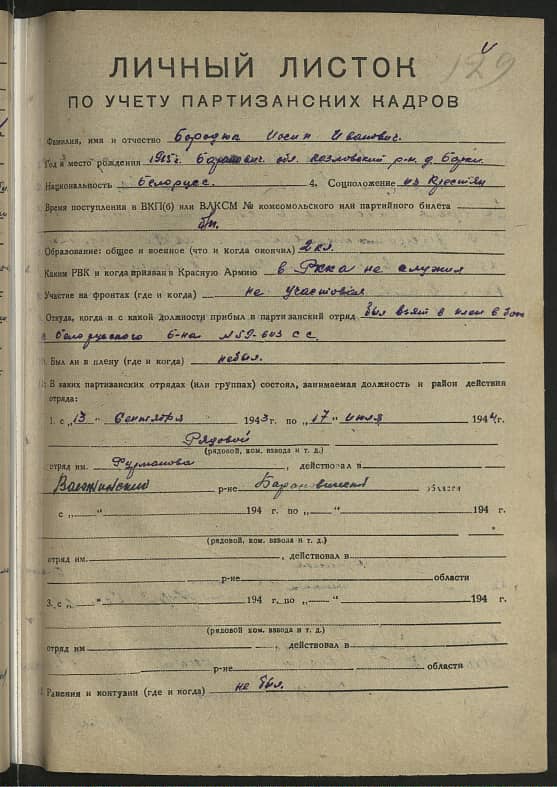 129
ЛИЧНЫЙ ЛИСТОК
ПО УЧЕТУ ПАРТИЗАНСКИХ КАДРОВ
Фамилия, имя и отчество Бородюк Иосиф Иванович.
Год и место рождения 1915г. Баранович. обл. козловский р-н. д.
Национальность Белорусс. 4. Соцположение из крестьян
Время поступления в ВКП(б) или ВЛКСМ № комсомольского или партийного билета
б/п.
Образование: общее и военное (что и когда окончил) 2 кл.
Каким РВК и когда призван в Красную Армию в Ркка не служил
Участие на фронтах (где и когда) не участовал
Откуда, когда и с какой должности прибыл в партизанский отряд был взят в плен в бою
с белорусского б-на №59-603 с с.
Был ли в плену (где и когда) небыл.
В каких партизанских отрядах (или группах) состоял, занимаемая должность и район действия
отряда:
1. с „13" Сентября 1943 г. по „17" июля 1944 г.
Рядовой
(рядовой, ком. взвода и т. д.)
отряд им. Фурманова, действовал в
р-не Барановичской области
с „ — " 194 г. по „ — " 194 г.
(рядовой, ком. взвода и т. д.)
отряд им., действовал в
р-не области
3. с 194 г. по „ — " 194 г.
(рядовой, ком. взвода и т. д.)
отряд им, действовал в
р-не области
Ранения и контузии (где и когда) не был.